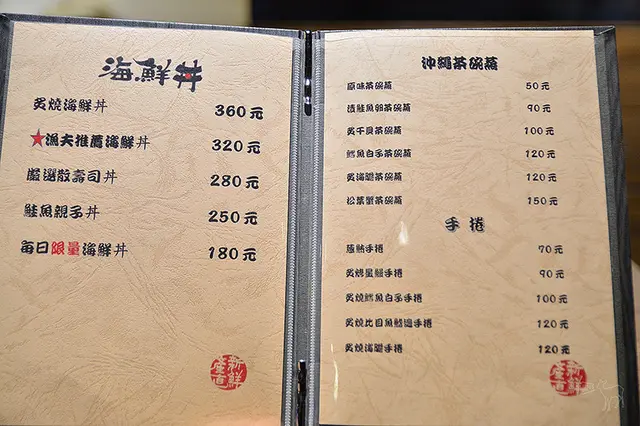 海鮮丼
炙燒海鮮丼 360元
★漁夫推薦海鮮丼 320元
嚴選散壽司丼 280元
鮭魚親子丼 250元
每日限量海鮮丼 180元
新鮮
沖繩茶碗蒸
原味茶碗蒸 50元
漬鮭魚卵茶碗蒸 90元
炙干貝茶碗蒸 100元
鱈魚白子茶碗蒸 120元
炙海膽茶碗蒸 120元
松葉蟹茶碗蒸 150元
手捲
手捲 70元
炙燒星鰻手捲 90元
炙燒鱈魚白子手捲 100元
炙燒比目魚鰭邊手捲 120元
炙燒海膽手捲 120元
新鮮